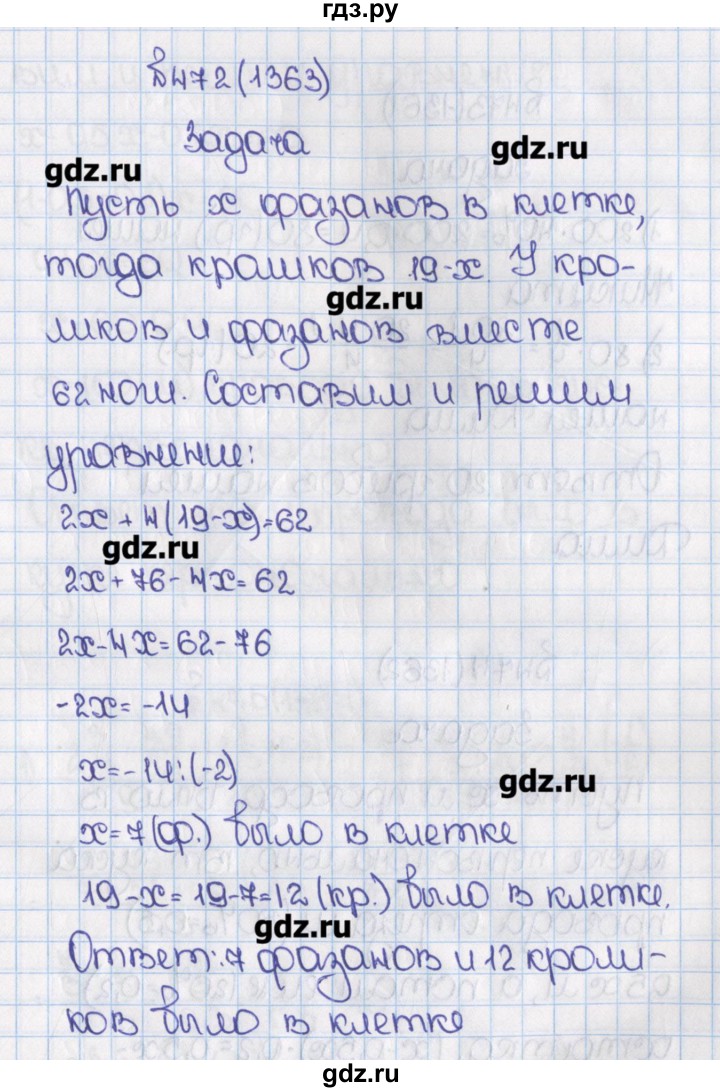 гдз.ру
№472(1363)
Задача
gdz.ru
gdz.ru
Пусть х фазанов в клетке,
тогда крошков 19-х. У кро-
gdz.ru
ликов и фазанов вместе
62 ног. Составим и решим
уравнение:
2х + 4(19-х)=62
gdz.ru
2х+76-4х=62
2х-4х=62-76
-2х= -14
х=-14:(-2)
gdz.ru
х=7(ф.) было в клетке
19-х=19-7=12(кр.) было в клетке.
gdz.ru
Ответ: 7 фазанов и 12 кроли-
ков было в клетке
gdz.ru